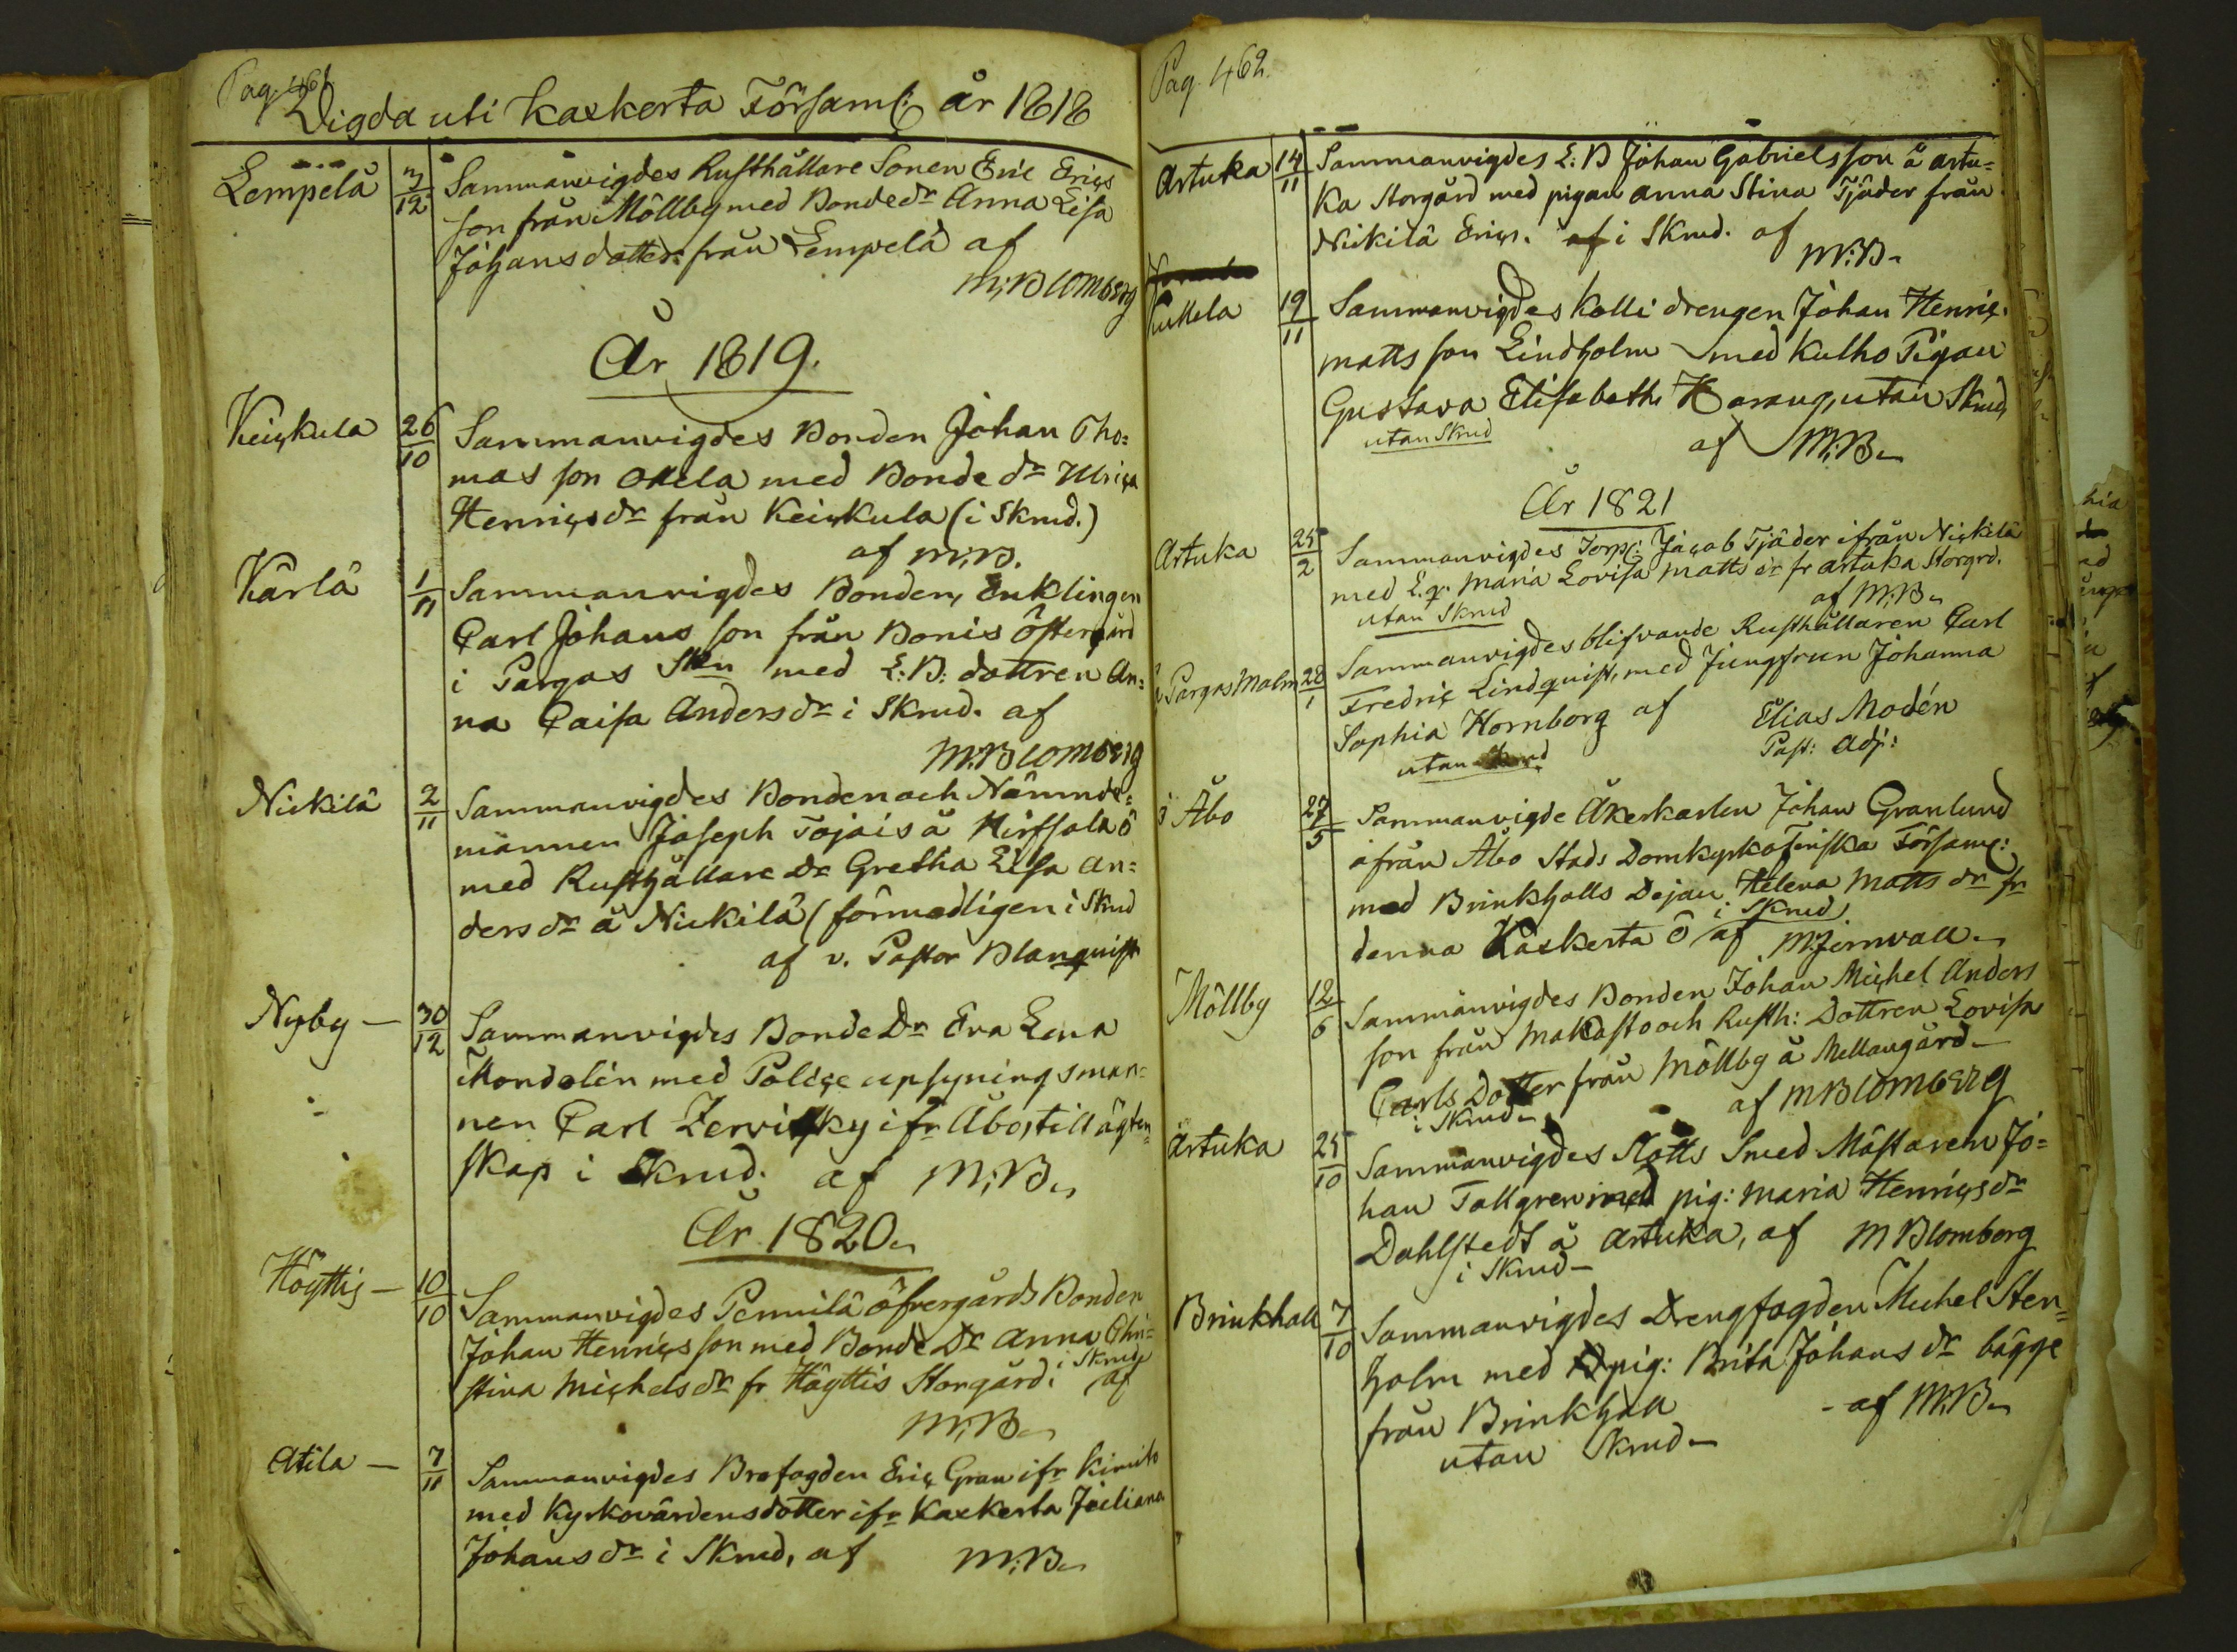 Pag. 461.
Vigda uti Kaxkerta Församl: år 1818
Lempelä 3/12 Sammanvigdes Rusthållare Sonen Eric Erics
son från Möllby med Bonde dr Anna Lisa
Johansdotter från Lempelä af
M: Blomberg
År 1819.
Keiçkula 26/10 Sammanvigdes Bonden Johan Tho=
mas son med Bonde dr Ulrica
Henrics dr från Keiçkula (i Skrud.)
af M:B.
Kärlä 1/11 Sammanvigdes Bonden, Enklingen
Carl Johans son från Bonis Östergård
i Pargas Skn med L:B: dottren An=
na Caisa Anders dr i Skrud. af
M:Blomberg
Nickilä 2/11 Sammanvigdes Bonden och Nämnde=
mannen Joseph Tojais å Hirfsala ö
med Rusthållare Dr Gretha Lisa An=
ders dr å Nickilä (förmodligen i Skrud
af v. Pastor Blanquist
Nyby — 30/12 Sammanvigdes Bonde Dr Eva Lena
Mondolin med Police upsyningsman=
nen Carl ifr Åbo, till ägten=
skap i Skrud. af M:B.
År 1820.
Höyttis — 10/10 Sammanvigdes Pennilä öfvergårds Bonden
Johan Henrics son med Bonde Dr Anna Chri=
stina Michels dr fr Höyttis Storgård i Skrud af
M:B.
Atila — 7/11 Sammanvigdes Brofogden Eric Gran ifr Kimito
med Kyrkovärdens dotter ifr Kaxkerta Juliana
Johans dr i Skrud, af M:B.
Pag. 462.
Artuka 14/11 Sammanvigdes L:B Johan Gabrielsson å Artu=
ka Storgård med pigan Anna Stina Tjäder från
Nickilä Erics. af i Skrud. af
M:B.
19/11 Sammanvigdes Kolli drengen Johan Henric
Matts son Lindholm med Kulho Pigan
Gustava Elisabeth utan Skrud,
utan Skrud af M:B.
År 1821
Artuka 25/2 Sammanvigdes Torp: Jacob Tjäder ifrån Nickilä
med L.p. Maria Lovisa Matts dr fr Artuka Storgrd.
utan Skrud af M:B.
i Pargas Malm 28/1 Sammanvigdes blifvande Rusthållaren Carl
Fredric Lindquist, med Jungfrun Johanna
Sophia Hornborg af Elias Modén
utan Skrud Past: Adj:
i Åbo 27/5 Sammanvigde Åkerkarlen Johan Granlund
ifrån Åbo Stads Domkyrko Finska Församl:
med Brinkhalls Dejan Helena Matts dr fr
i Skrud
denna Kaxkerta ö af M:Jernvall.
Möllby 12/6 Sammanvigdes Bonden Johan Michel Anders
son från Makasto och Rusth: Dottren Lovisa
Carls Dotter från Möllby å Mellangård.
i Skrud. af M Blomberg
Artuka 25/10 Sammanvigdes Slotts Smed Mästaren Jo=
han Tallgren med pig: Maria Henrics dr
Dahlstedt å Artuka, af M Blomberg
i Skrud
Brinkhall 7/10 Sammanvigdes Drengfogden Michel Sten=
holm med pig: Brita Johans dr bägge
från Brinkhall - af M:B.
utan Skrud